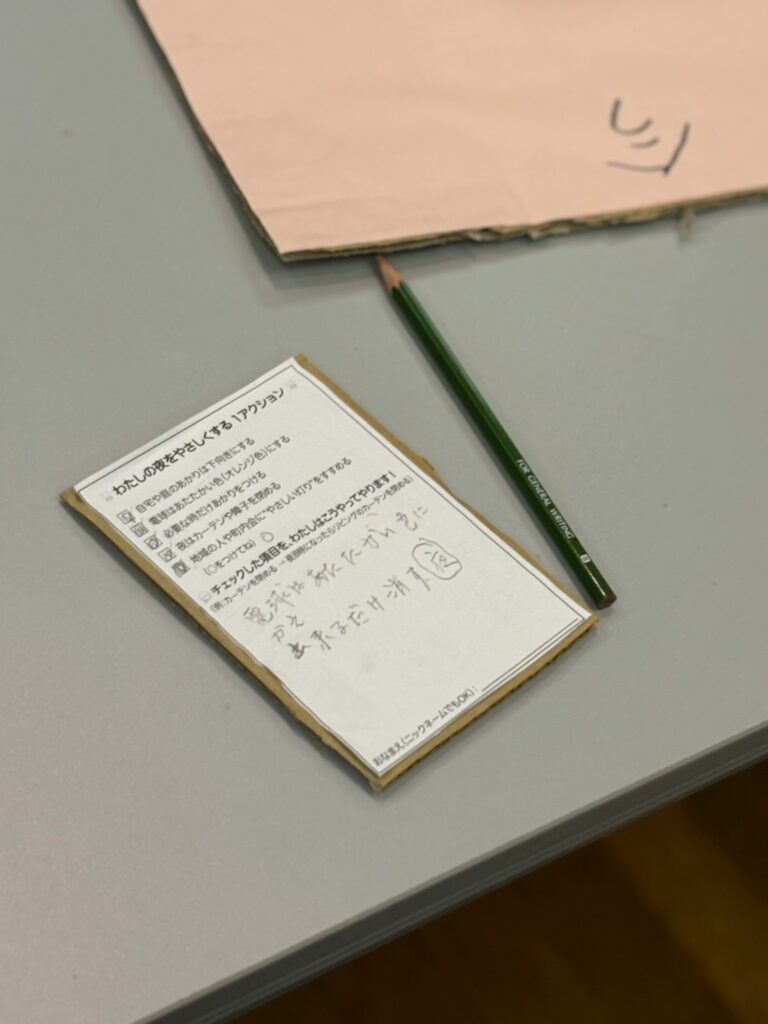 わたしの夜をやさしくする1アクション
自宅や庭のあかりは下向きにする
電球はあたたかい色(オレンジ色)にする
必要な時だけあかりをつける
夜はカーテンや障子を閉める
地域の人や町内会に"やさしい灯り"をすすめる
(○をつけてね)
チェックした項目を、わたしはこうやってやります!
(例:カーテンを閉める → 夜8時になったらリビングのカーテンを閉める)
電球はあたたかい色に
かえ
出来るだけ消す 夜
おなまえ(ニックネームでもOK):
FOR GENERAL WRITING B